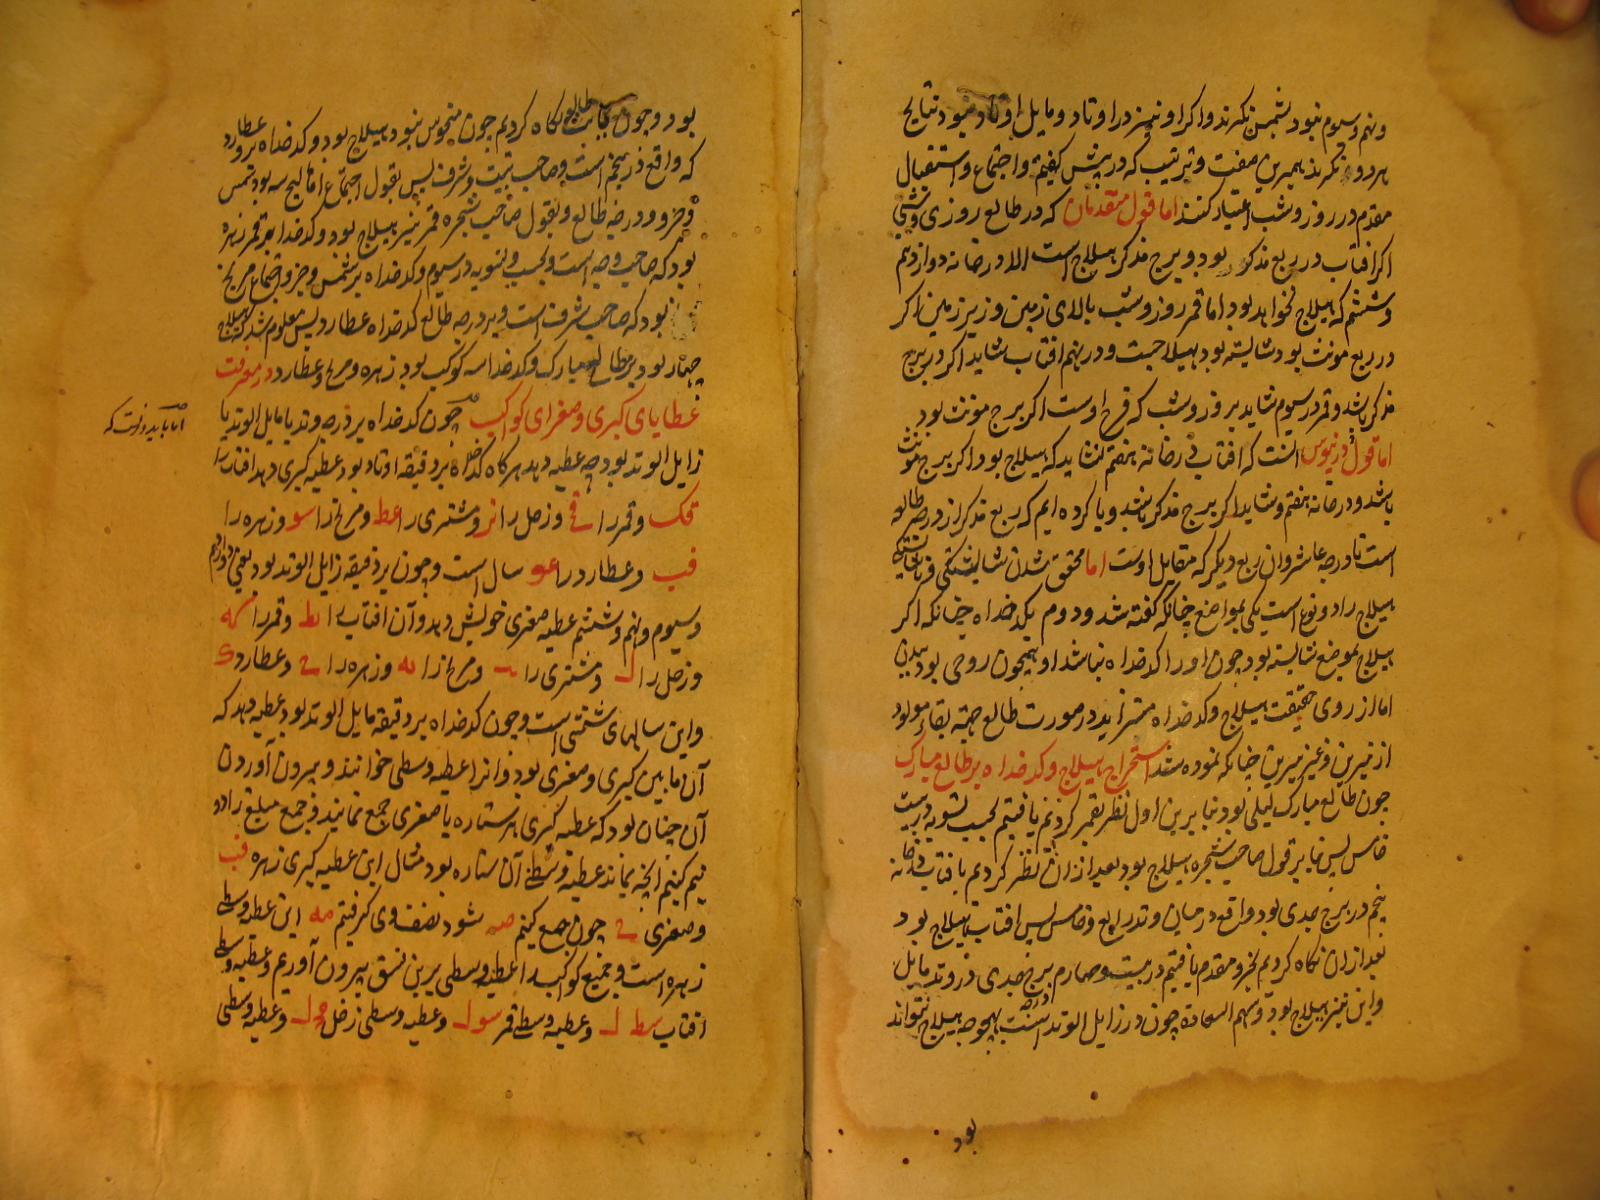 ونهم وسیوم نبود بشمس نکرند واکر او نیز در اوتاد و مایل اوتاد نبود بنتایج
هر دو نکرند بهمین صفت و ترتیب که در پیش کفتیم و اجتماع و استقبال
مقدم در روز و شب اعتبار کنند اما قول متقدمان که در طالع روزی و شبی
اکر افتاب در ربع مذکر بود و برج مذکر هیلاج است الا در خانه دوازدهم
و ششم که هیلاج نخواهد بود اما قمر روز و شب بالای زمین و زیر زمین اکر
در ربع مونث بود شایسته بود هیلاجیت و در نهم افتاب شاید اکر در برج
مذکر باشد و قمر در سیوم شاید بروز و شب که فرح اوست اکر برج مونث بود
اما قول انست که افتاب در خانه هفتم نشاید که هیلاج بود اکر برج مونث
باشد و در خانه هفتم شاید اکر برج مذکر باشد و یا کرده ایم که ربع مذکر از درجه طالع
است تا درجه عاشر وان ربع دیکر که مقابل اوست اما محقق شدن شایستکی
هیلاج را دو نوع است یکی بمواضع چنانکه کفته شد و دوم بکدخداه چنانکه اکر
هیلاج بموضع شایسته بود چون او را کدخداه نباشد او همچون روحی بود بی بدن
اما از روی حقیقت هیلاج و کدخداه در صورت طالع جهة بقاء مولود
از نیرین و غیر نیرین چنانکه نموده شد استخراج هیلاج و کدخداه بر طالع مبارک
چون طالع مبارک لیلی بود بنابرین اول نظر بقمر کردیم یافتیم بحسب تسویه در بیت
خامس پس بنابر قول صاحب شجره هیلاج بود بعد از ان نظر کردیم بافتاب در خانه
پنجم در برج جدی بود واقع درمیان وتد رابع و خامس پس افتاب هیلاج بود
بعد از ان نکاه کردیم بجزو مقدم یافتیم در بیست و چهارم برج جدی در وتد مایل
واین نیز هیلاج بود و سهم السعادة چون در زایل الوتد است بهیچ وجه هیلاج نتواند
بود
بود و چون بطالع نکاه کردیم چون منحوس نبود هیلاج بود و کدخداه برو عطارد
که واقع در پنجم است و صاحب بیت و شرف پس بقول اجتماع اما هیلاج سه بود شمس
و جزو و درجه طالع و بقول صاحب شجره قمر نیز هیلاج بود و کدخدا بر قمر زهره
بود که صاحب وجه است و بحسب تسویه در سیوم و کدخداه بر شمس و جزو اجتماع مریخ
بود که صاحب شرف است و بر درجه طالع کدخداه عطارد پس معلوم شد که هیلاج
چهار بود بر طالع مبارک و کدخداه سه کوکب بود زهره و مریخ و عطارد در معرفت
عطایای کبری و صغرای کواکب چون کدخداه بر درجه وتد یا مایل الوتد یا
زایل الوتد بود چه عطیه دهد هر کاه کدخداه بر دقیقه اوتاد بود عطیه کبری دهد افتاب را
قک و قمر را قح و زحل را نز و مشتری را عط و مریخ را سو و زهره را
فب و عطارد را عو سال است و چون بر دقیقه زایل الوتد بود یعنی دوازدهم
و سیوم و نهم و ششم عطیه صغری خویش دهد و آن افتاب را یط و قمر را که
و زحل را ل و مشتری را یب و مریخ را یه و زهره را ح و عطارد را ک
واین سالهای شمسی است و چون کدخداه بر دقیقه مایل الوتد بود عطیه دهد که
آن ما بین کبری و صغری بود و انرا عطیه وسطی خوانند و بیرون آوردن
آن چنان بود که عطیه کبری هر ستاره با صغری جمع نمایند و جمع مبلغ را دو
نیم کنیم انچه بماند عطیه وسطی آن ستاره بود مثال این عطیه کبری زهره فب
و صغری ح چون جمع کنیم صه شود نصف وی کرفتیم مه این عطیه وسطی
زهره است و جمیع کواکب را عطیه وسطی برین نسق بیرون آوریم و عطیه وسطی
افتاب سط ل و عطیه وسطی قمر سو ل و عطیه وسطی زحل مح ل و عطیه وسطی
اما باید دانست که